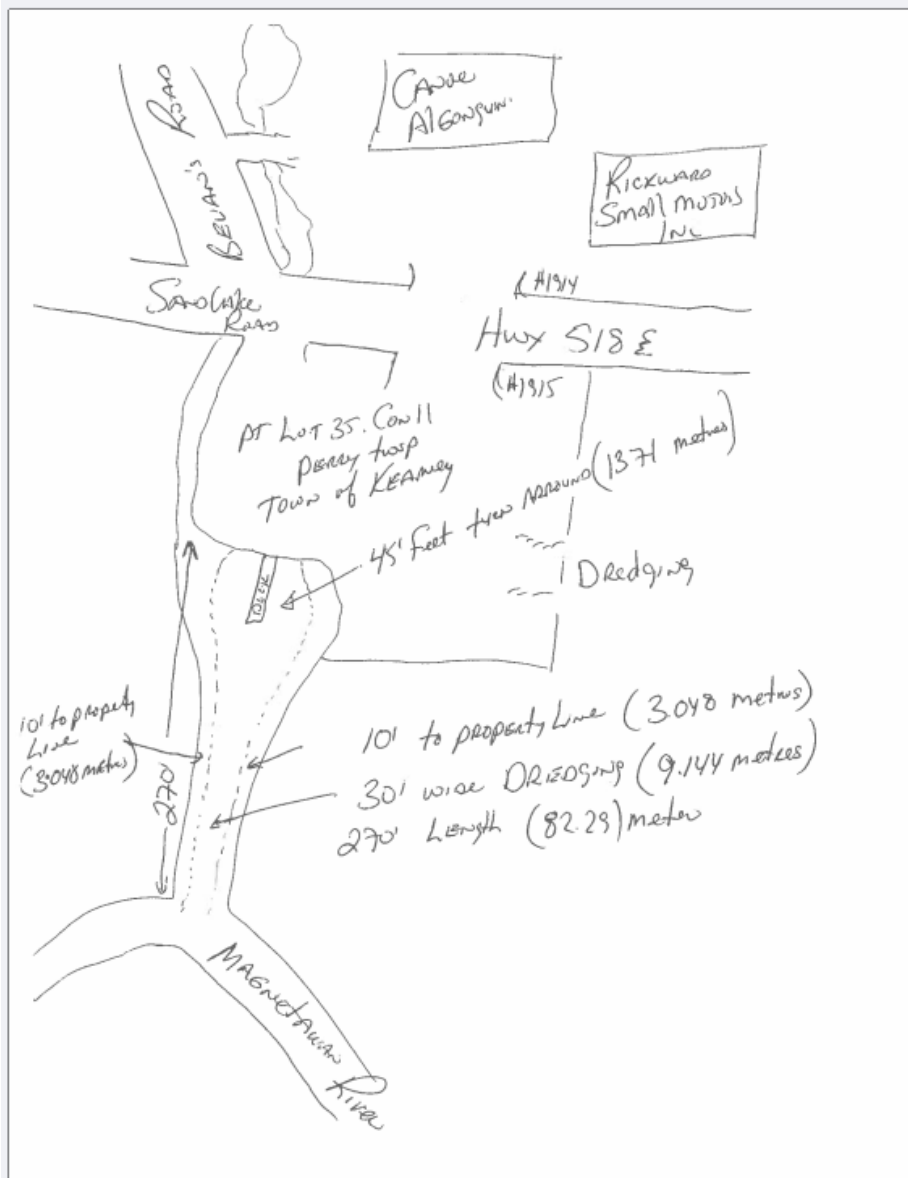 Bevan's Road
Canoe
Algonquin.
Rickward
Small Motors
Inc
Sand Lake
Road
#1914
Hwy 518 E
#1915
PT Lot 35. Con 11
Perry twsp
Town of Kearney
45' Feet turn Arround (13.71 metres)
Dock
Dredging
10' to property
Line
(3.048 metres)
270'
10' to property Line (3.048 metres)
30' wide DRIEDGING (9.144 metres)
270' Length (82.29) meter
Magnetawan
River